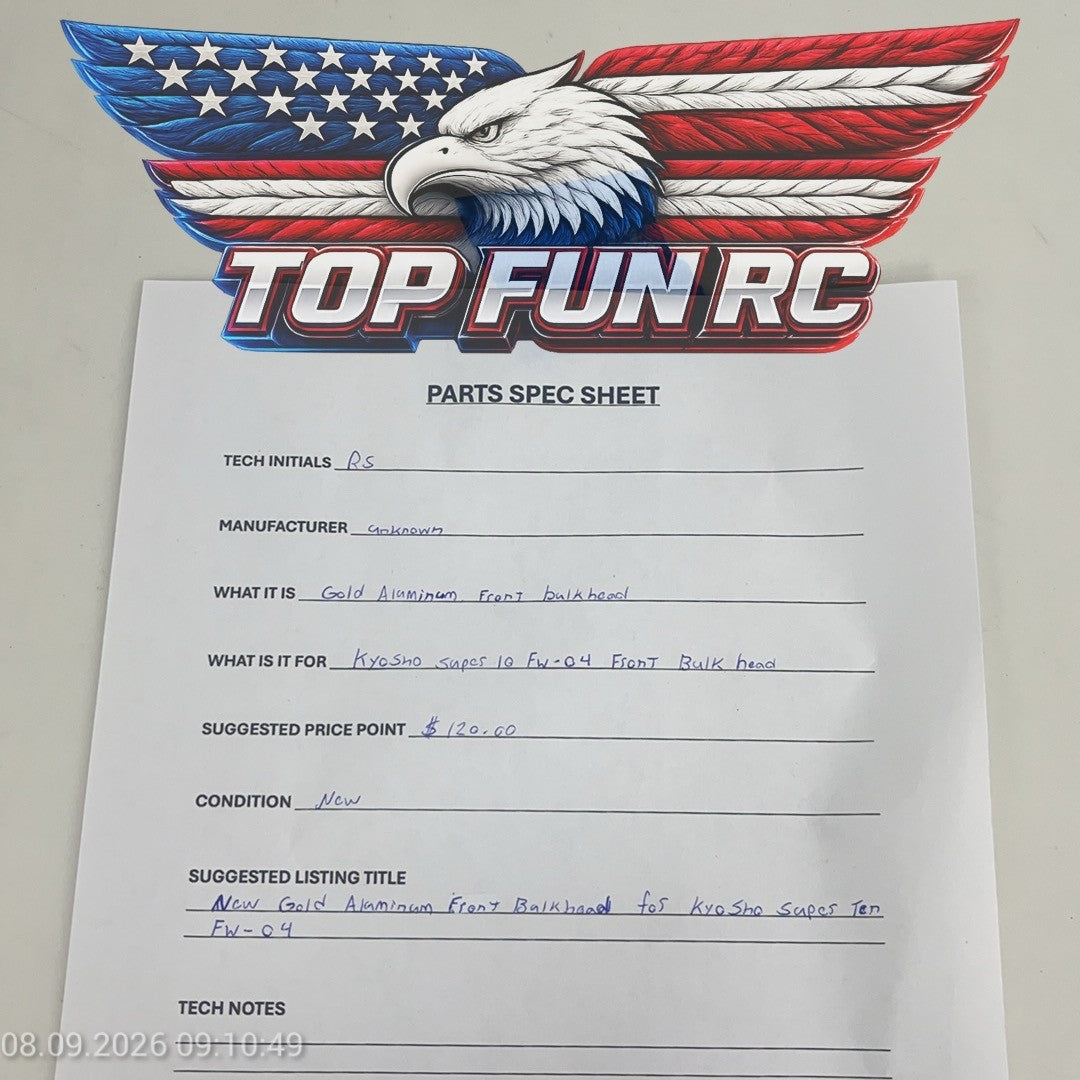 TOP FUN RC
PARTS SPEC SHEET
TECH INITIALS RS
MANUFACTURER unknown
WHAT IT IS Gold Aluminum Front bulkhead
WHAT IS IT FOR Kyosho super 10 FW-04 Front Bulk head
SUGGESTED PRICE POINT $120.00
CONDITION New
SUGGESTED LISTING TITLE
New Gold Aluminum Front Bulkhead for Kyosho super Ten
FW-04
TECH NOTES
08.09.2026 09:10:49